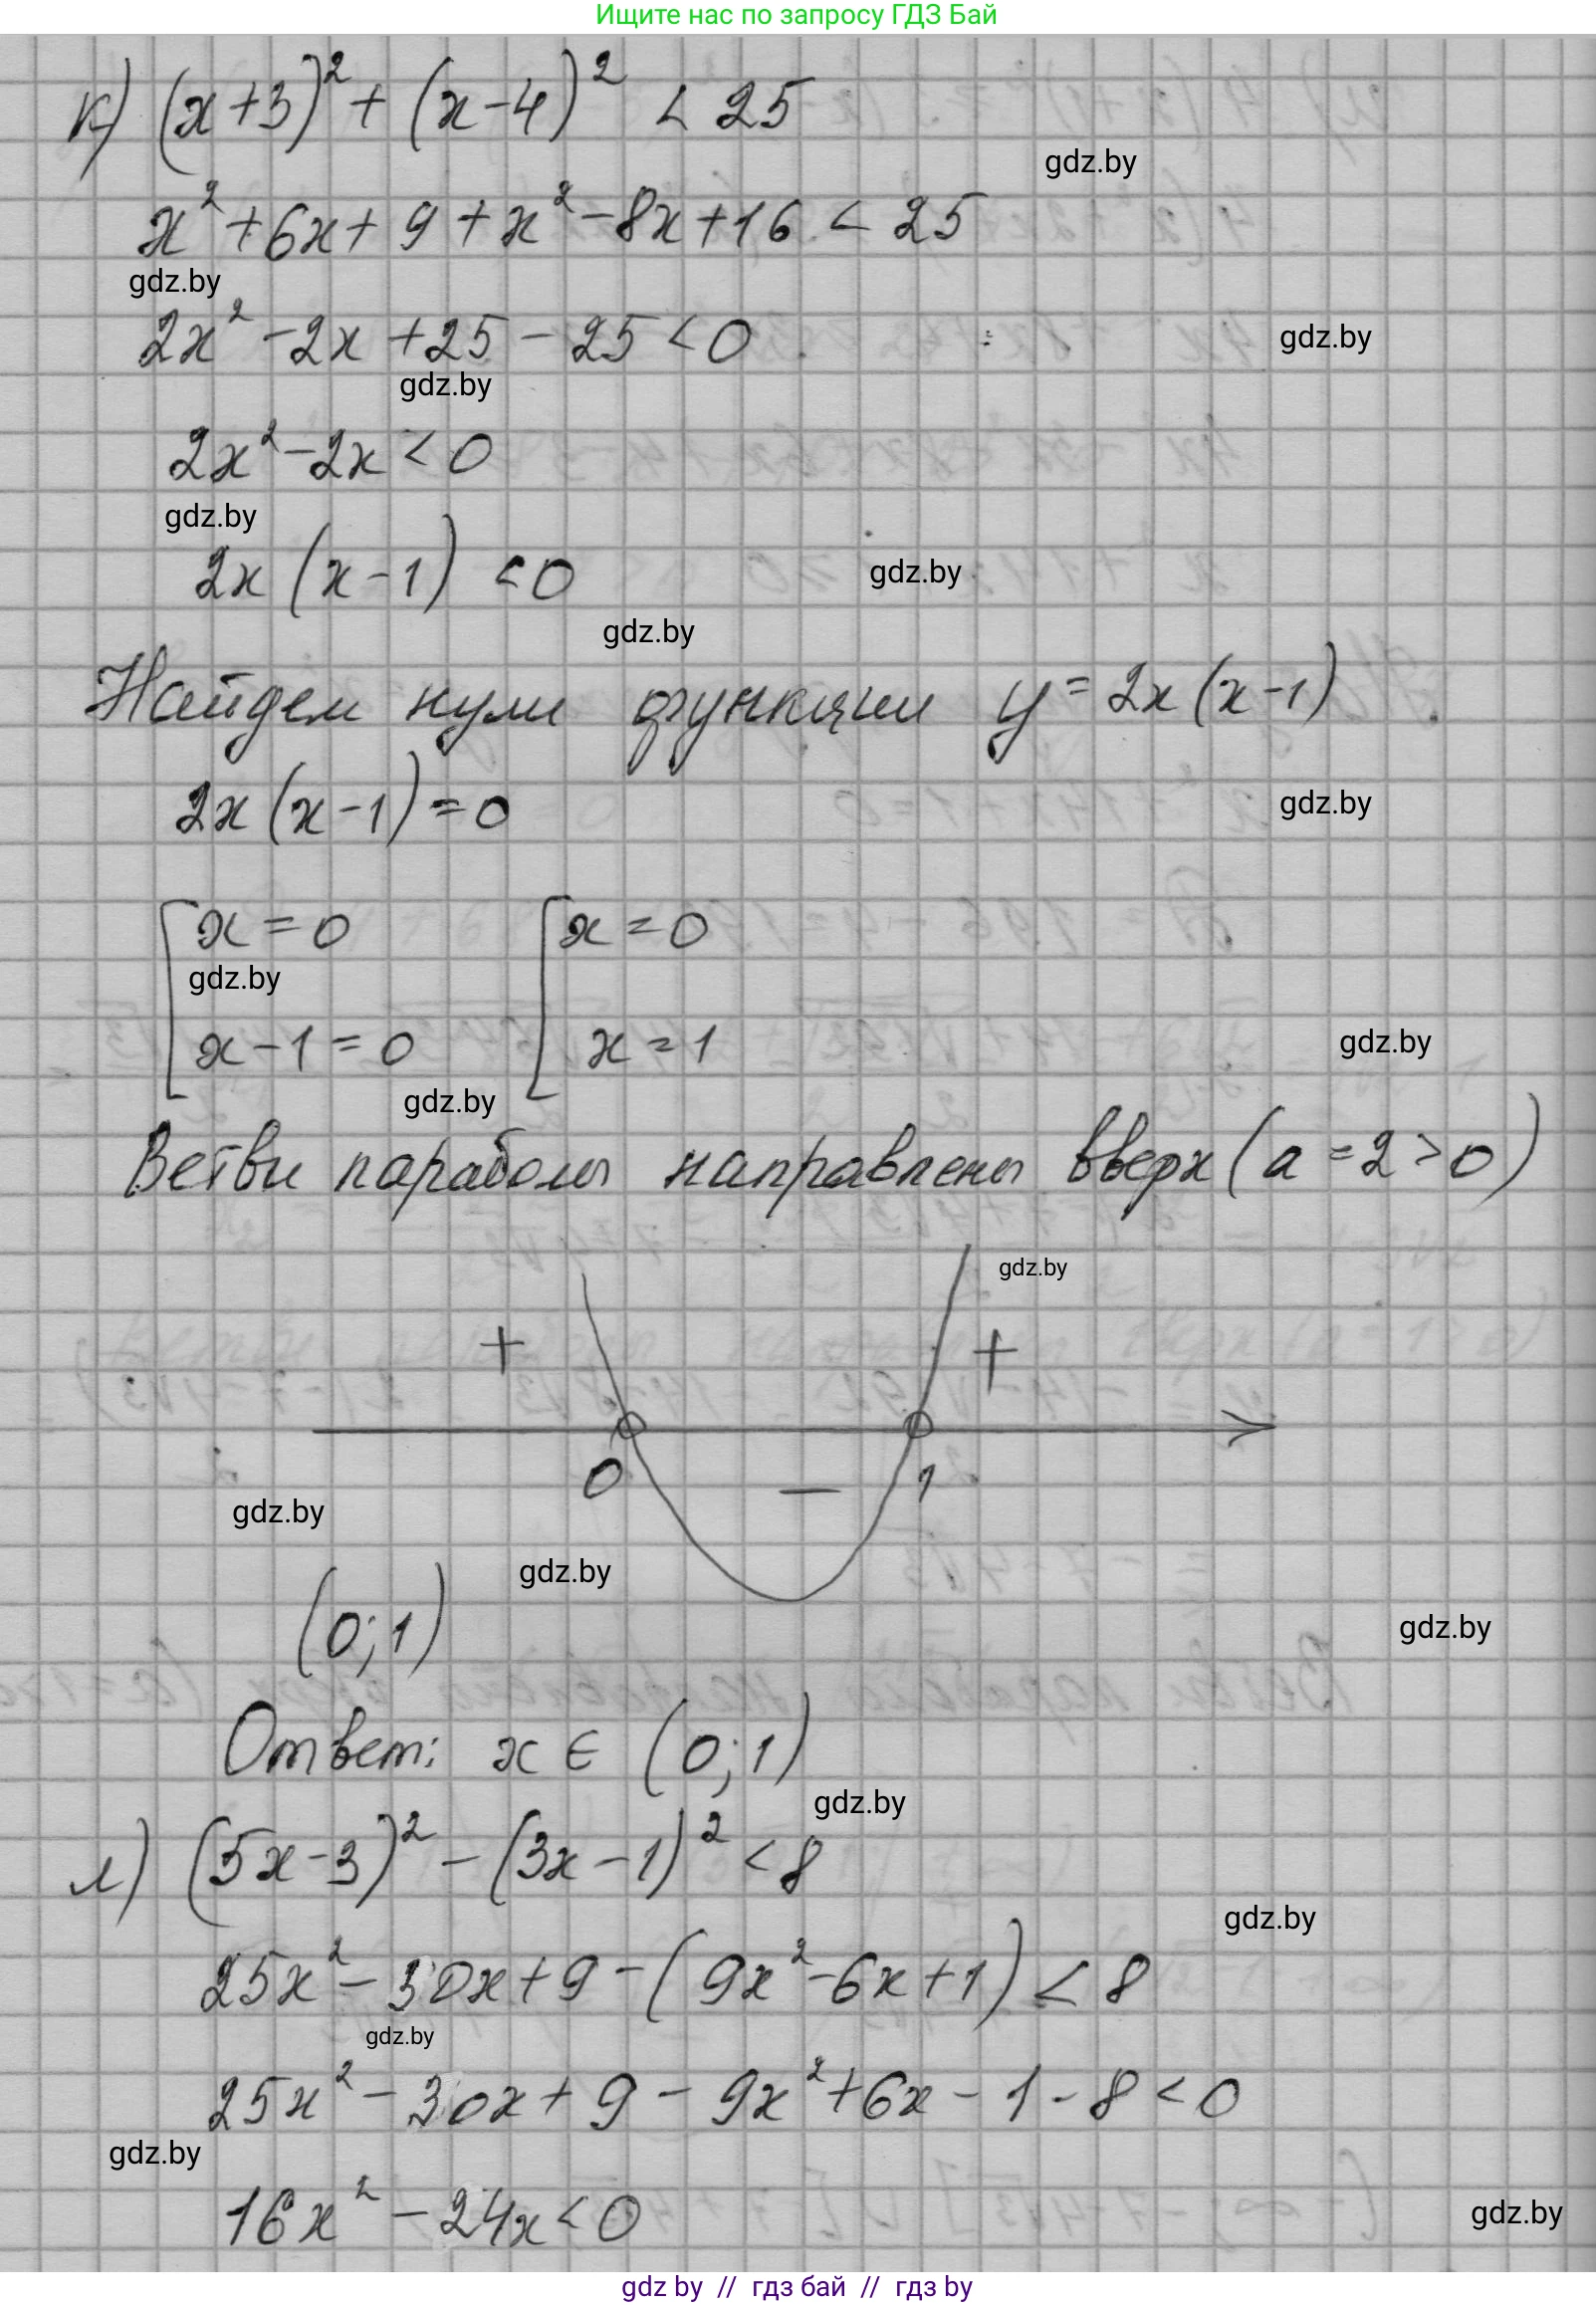 Ищите нас по запросу ГДЗ Бай
к) (x+3)² + (x-4)² < 25
gdz.by
x² + 6x + 9 + x² - 8x + 16 < 25
gdz.by
2x² - 2x + 25 - 25 < 0
gdz.by
gdz.by
2x² - 2x < 0
gdz.by
2x (x-1) < 0
gdz.by
gdz.by
Найдем нули функции y = 2x(x-1)
2x(x-1) = 0
gdz.by
[x = 0 [x = 0
gdz.by
x - 1 = 0 x = 1
gdz.by
gdz.by
Ветви параболы направлены вверх (a = 2 > 0)
gdz.by
+ +
0 − 1
gdz.by
gdz.by
(0; 1)
gdz.by
Ответ: x ∈ (0; 1)
gdz.by
л) (5x-3)² - (3x-1)² < 8
gdz.by
25x² - 30x + 9 - (9x² - 6x + 1) < 8
gdz.by
25x² - 30x + 9 - 9x² + 6x - 1 - 8 < 0
gdz.by
16x² - 24x < 0
gdz.by
gdz by // гдз бай // гдз by